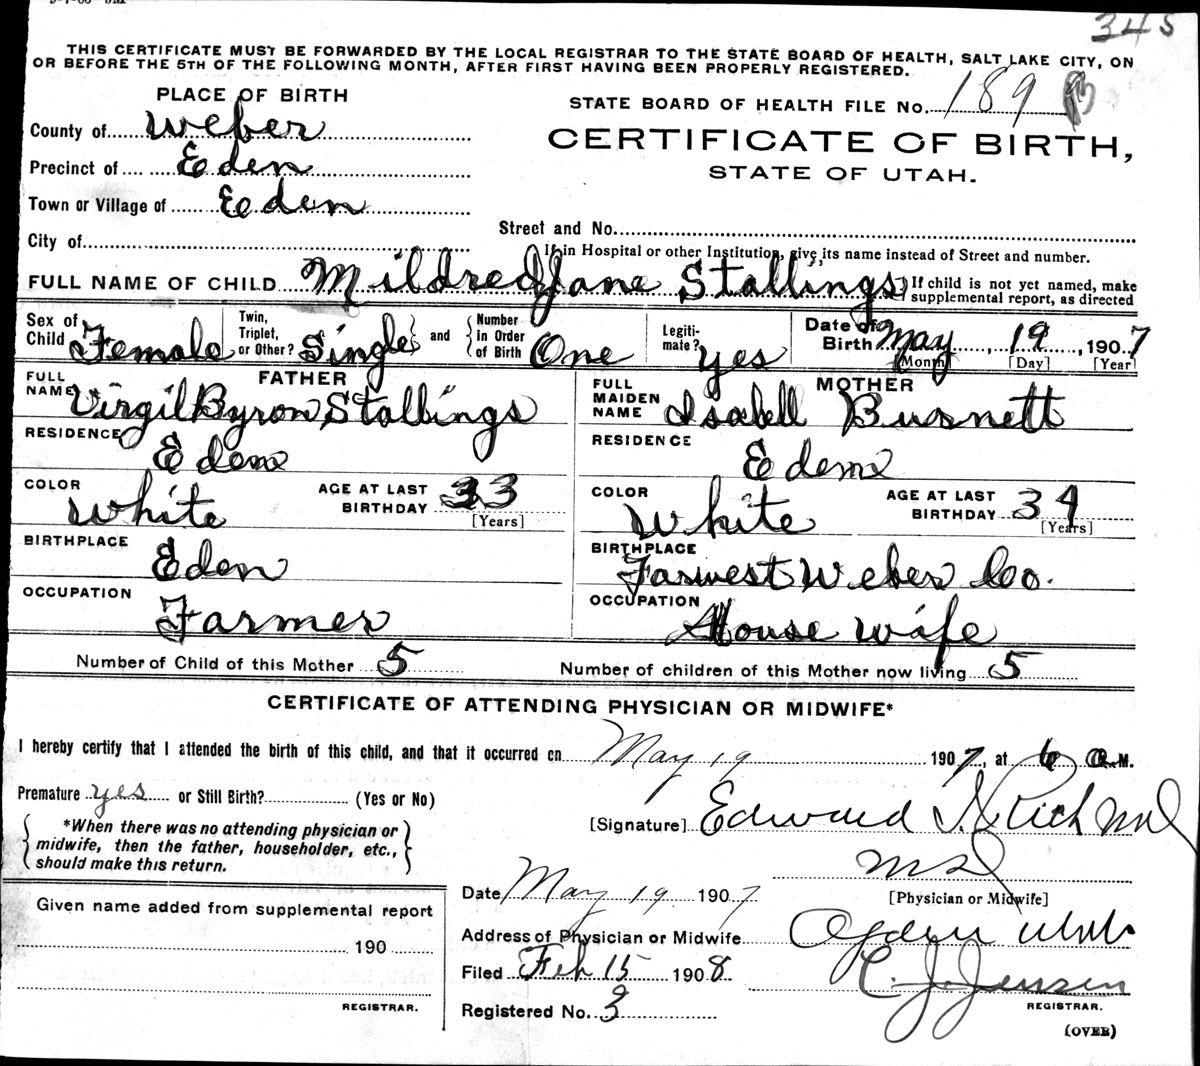 345
THIS CERTIFICATE MUST BE FORWARDED BY THE LOCAL REGISTRAR TO THE STATE BOARD OF HEALTH, SALT LAKE CITY, ON
OR BEFORE THE 5TH OF THE FOLLOWING MONTH, AFTER FIRST HAVING BEEN PROPERLY REGISTERED.
PLACE OF BIRTH
STATE BOARD OF HEALTH FILE No. 189
County of Weber
CERTIFICATE OF BIRTH,
Precinct of Eden
STATE OF UTAH.
Town or Village of Eden
Street and No.
City of
If in Hospital or other Institution, give its name instead of Street and number.
FULL NAME OF CHILD Mildred Jane Stallings } If child is not yet named, make supplemental report, as directed
Sex of Child Female Twin, Triplet, or Other? Single } and { Number in Order of Birth One Legiti-mate? yes Date of Birth May, 19, 1907
[Month] [Day] [Year]
FATHER
MOTHER
FULL NAME Virgil Byron Stallings
FULL MAIDEN NAME Isabell Burnett
RESIDENCE Eden
RESIDENCE Eden
COLOR White AGE AT LAST BIRTHDAY 33 [Years]
COLOR White AGE AT LAST BIRTHDAY 34 [Years]
BIRTHPLACE Eden
BIRTHPLACE Farwest Weber Co.
OCCUPATION Farmer
OCCUPATION House wife
Number of Child of this Mother 5 Number of children of this Mother now living 5
CERTIFICATE OF ATTENDING PHYSICIAN OR MIDWIFE*
I hereby certify that I attended the birth of this child, and that it occurred on May 19 1907, at 6 a.M.
Premature yes or Still Birth? (Yes or No)
[Signature] Edward I. Rich MD
*When there was no attending physician or
midwife, then the father, householder, etc.,
should make this return.
MD
[Physician or Midwife]
Date May 19 1907
Given name added from supplemental report
190
REGISTRAR.
Address of Physician or Midwife Ogden Utah
Filed Feb 15 1908
C. J. Jensen
REGISTRAR.
Registered No. 3
(OVER)